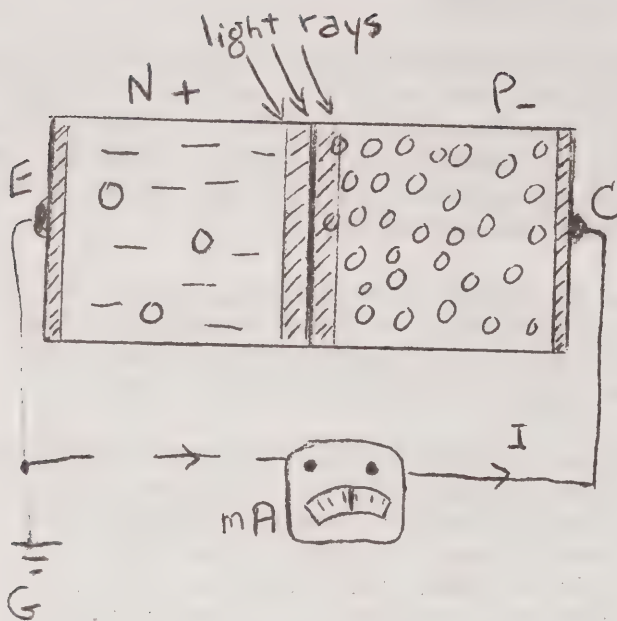 light rays
N +
P -
E
C
I
mA
G